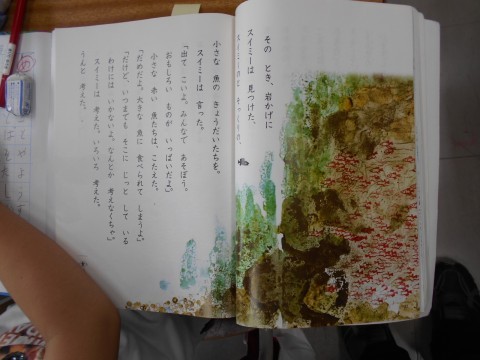 その とき、岩かげに
スイミーは 見つけた、
スイミーのと そっくりの、
小さな 魚の きょうだいたちを。
スイミーは 言った。
「出て こいよ。みんなで あそぼう。
おもしろい ものが いっぱいだよ。」
小さな 赤い 魚たちは、こたえた。
「だめだよ。大きな 魚に 食べられて しまうよ。」
「だけど、いつまでも そこに じっと して いる
わけには いかないよ。なんとか 考えなくちゃ。」
スイミーは 考えた。いろいろ 考えた。
うんと 考えた。